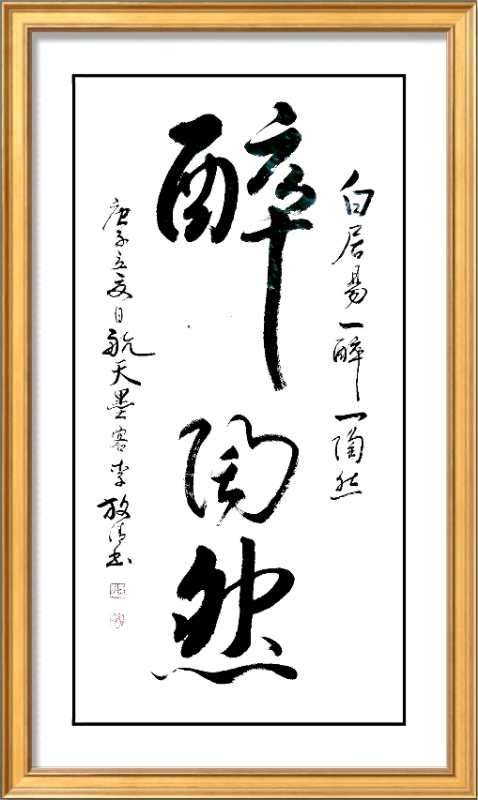 白居易一醉一陶然
醉陶然
庚子立夏日航天墨客李放清书